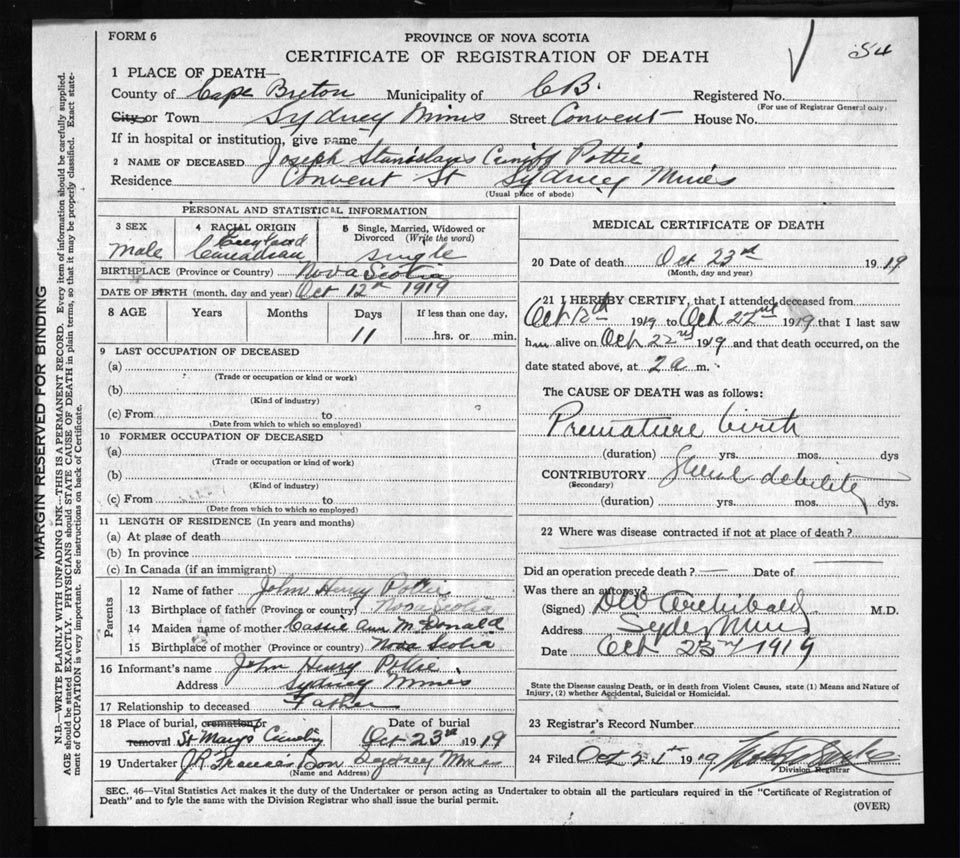 FORM 6
PROVINCE OF NOVA SCOTIA
CERTIFICATE OF REGISTRATION OF DEATH
54
1 PLACE OF DEATH—
County of Cape Breton Municipality of C B. Registered No.
(For use of Registrar General only)
City or Town Sydney Mines Street Convent House No.
If in hospital or institution, give name
2 NAME OF DECEASED Joseph Stanislaus Pottie
Residence Convent St Sydney Mines
(Usual place of abode)
PERSONAL AND STATISTICAL INFORMATION
3 SEX
Male
4 RACIAL ORIGIN
England
Canadian
5 Single, Married, Widowed or Divorced (Write the word)
single
BIRTHPLACE (Province or Country) Nova Scotia
DATE OF BIRTH (month, day and year) Oct 12th 1919
8 AGE Years Months Days If less than one day,
11 hrs. or min.
9 LAST OCCUPATION OF DECEASED
(a)
(Trade or occupation or kind or work)
(b)
(Kind of industry)
(c) From to
(Date from which to which so employed)
10 FORMER OCCUPATION OF DECEASED
(a)
(Trade or occupation or kind of work)
(b)
(Kind of industry)
(c) From to
(Date from which to which so employed)
11 LENGTH OF RESIDENCE (In years and months)
(a) At place of death
(b) In province
(c) In Canada (if an immigrant)
Parents
12 Name of father John Henry Pottie
13 Birthplace of father (Province or country) Nova Scotia
14 Maiden name of mother Cassie Ann McDonald
15 Birthplace of mother (Province or country) Nova Scotia
16 Informant's name John Henry Pottie
Address Sydney Mines
17 Relationship to deceased Father
18 Place of burial, cremation or removal St Marys Date of burial
Oct 23rd 1919
19 Undertaker J R Francis Sydney Mines
(Name and Address)
MEDICAL CERTIFICATE OF DEATH
20 Date of death Oct 23rd 1919
(Month, day and year)
21 I HEREBY CERTIFY, that I attended deceased from
Oct 12th 1919 to Oct 22nd 1919 that I last saw
him alive on Oct 22nd 1919 and that death occurred, on the
date stated above, at 2 a m.
The CAUSE OF DEATH was as follows:
Premature birth
(duration) yrs. mos. dys
CONTRIBUTORY debility
(Secondary)
(duration) yrs. mos. dys.
22 Where was disease contracted if not at place of death?
Did an operation precede death? — Date of
Was there an autopsy?
(Signed) DW Archibald M.D.
Address Sydney Mines
Date Oct 23rd/1919
State the Disease causing Death, or in death from Violent Causes, state (1) Means and Nature of
Injury, (2) whether Accidental, Suicidal or Homicidal.
23 Registrar's Record Number
24 Filed Oct 1919
Division Registrar
SEC. 46—Vital Statistics Act makes it the duty of the Undertaker or person acting as Undertaker to obtain all the particulars required in the "Certificate of Registration of
Death" and to fyle the same with the Division Registrar who shall issue the burial permit.
(OVER)
MARGIN RESERVED FOR BINDING
N.B.—WRITE PLAINLY WITH UNFADING INK—THIS IS A PERMANENT RECORD. Every item of information should be carefully supplied.
AGE should be stated EXACTLY. PHYSICIANS should STATE CAUSE OF DEATH in plain terms, so that it may be properly classified. Exact state-
ment of OCCUPATION is very important. See instructions on back of Certificate.